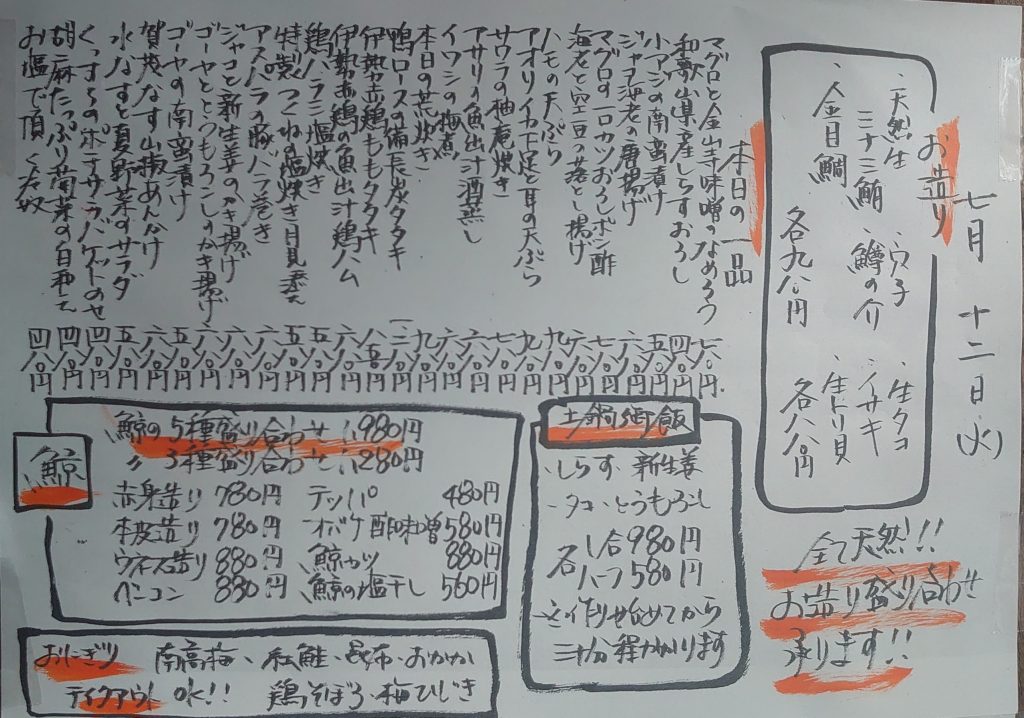 七月 十二日(火)
お造り
・天然生
三十三鮪
・金目鯛
・穴子
・鱒の介
各九八〇円
・生タコ
・イサキ
・生トリ貝
各八八〇円
全て天然!!
お造り盛り合わせ
承ります!!
本日の一品
マグロと金山寺味噌のなめろう 七八〇円
和歌山県産しらすおろし 四八〇円
小アジの南蛮漬け 五八〇円
ジャコ海老の唐揚げ 六八〇円
マグロの一口カツおろしポン酢 七八〇円
海老と空豆の落とし揚げ 六八〇円
ハモの天ぷら 九八〇円
アオリイカ下足と耳の天ぷら 九八〇円
サワラの柚庵焼き 七八〇円
アサリの魚出汁酒蒸し 六八〇円
イワシの梅煮 六八〇円
本日の荒炊き 九八〇円
鴨ロースの備長炭タタキ
伊勢赤鶏ももタタキ
伊勢赤鶏の魚出汁鶏ハム
鶏ハラミ塩焼き 五八〇円
特製つくねの塩焼き月見添え 五八〇円
アスパラの豚バラ巻き 六八〇円
ジャコと新生姜のかき揚げ 六八〇円
ゴーヤととうもろこしのかき揚げ 六八〇円
ゴーヤの南蛮漬け
賀茂なす山椒あんかけ 六八〇円
水なすと夏野菜のサラダ 五八〇円
くっすらのポテサラバケットのせ 四八〇円
胡麻たっぷり菊菜の白和え 四八〇円
お塩で頂く冷奴 四八〇円
鯨
鯨の5種盛り合わせ 1,980円
〃 3種盛り合わせ 1,280円
赤身造り 780円 テッパ 480円
本皮造り 780円 オバケ酢味噌 580円
ウネス造り 880円 鯨カツ 880円
ベーコン 880円 鯨の塩干し 560円
土鍋御飯
・しらす・新生姜
・タコ・とうもろこし
各 1合980円
ハーフ580円
※作り始めてから
三十分程かかります
おにぎり 南高梅、紅鮭・昆布・おかか
テイクアウトOK!! 鶏そぼろ・梅ひじき